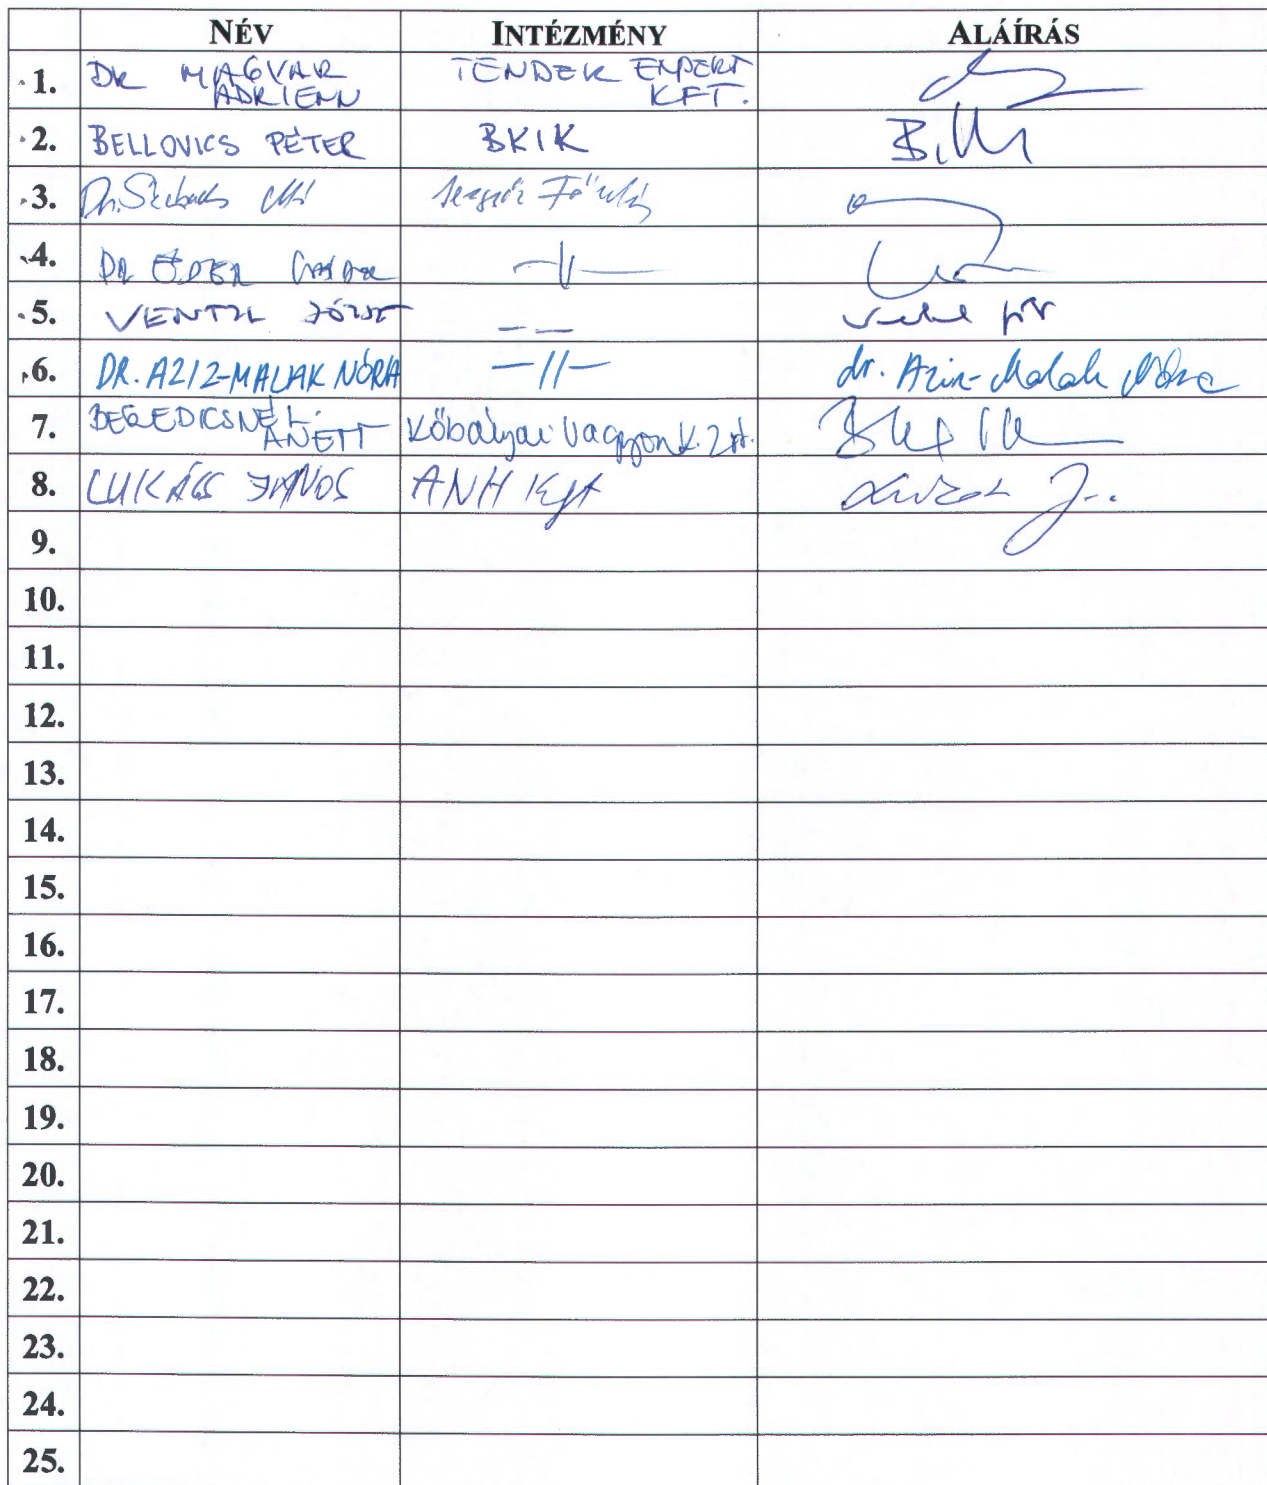 NÉV INTÉZMÉNY ALÁÍRÁS
1. DR MAGYAR ADRIENN TENDER EXPERT KFT.
2. BELLOVICS PÉTER BKIK
3. Dr.
4. DR ÉDER —//—
5. VENTZL JÓZSEF — —
6. DR. AZIZ-MALAK NÓRA —//— dr. Aziz-Malak Nóra
7. ANETT Kőbányai Vagyonk. Zrt.
8. LUKÁCS JÁNOS ANH Kft
9.
10.
11.
12.
13.
14.
15.
16.
17.
18.
19.
20.
21.
22.
23.
24.
25.